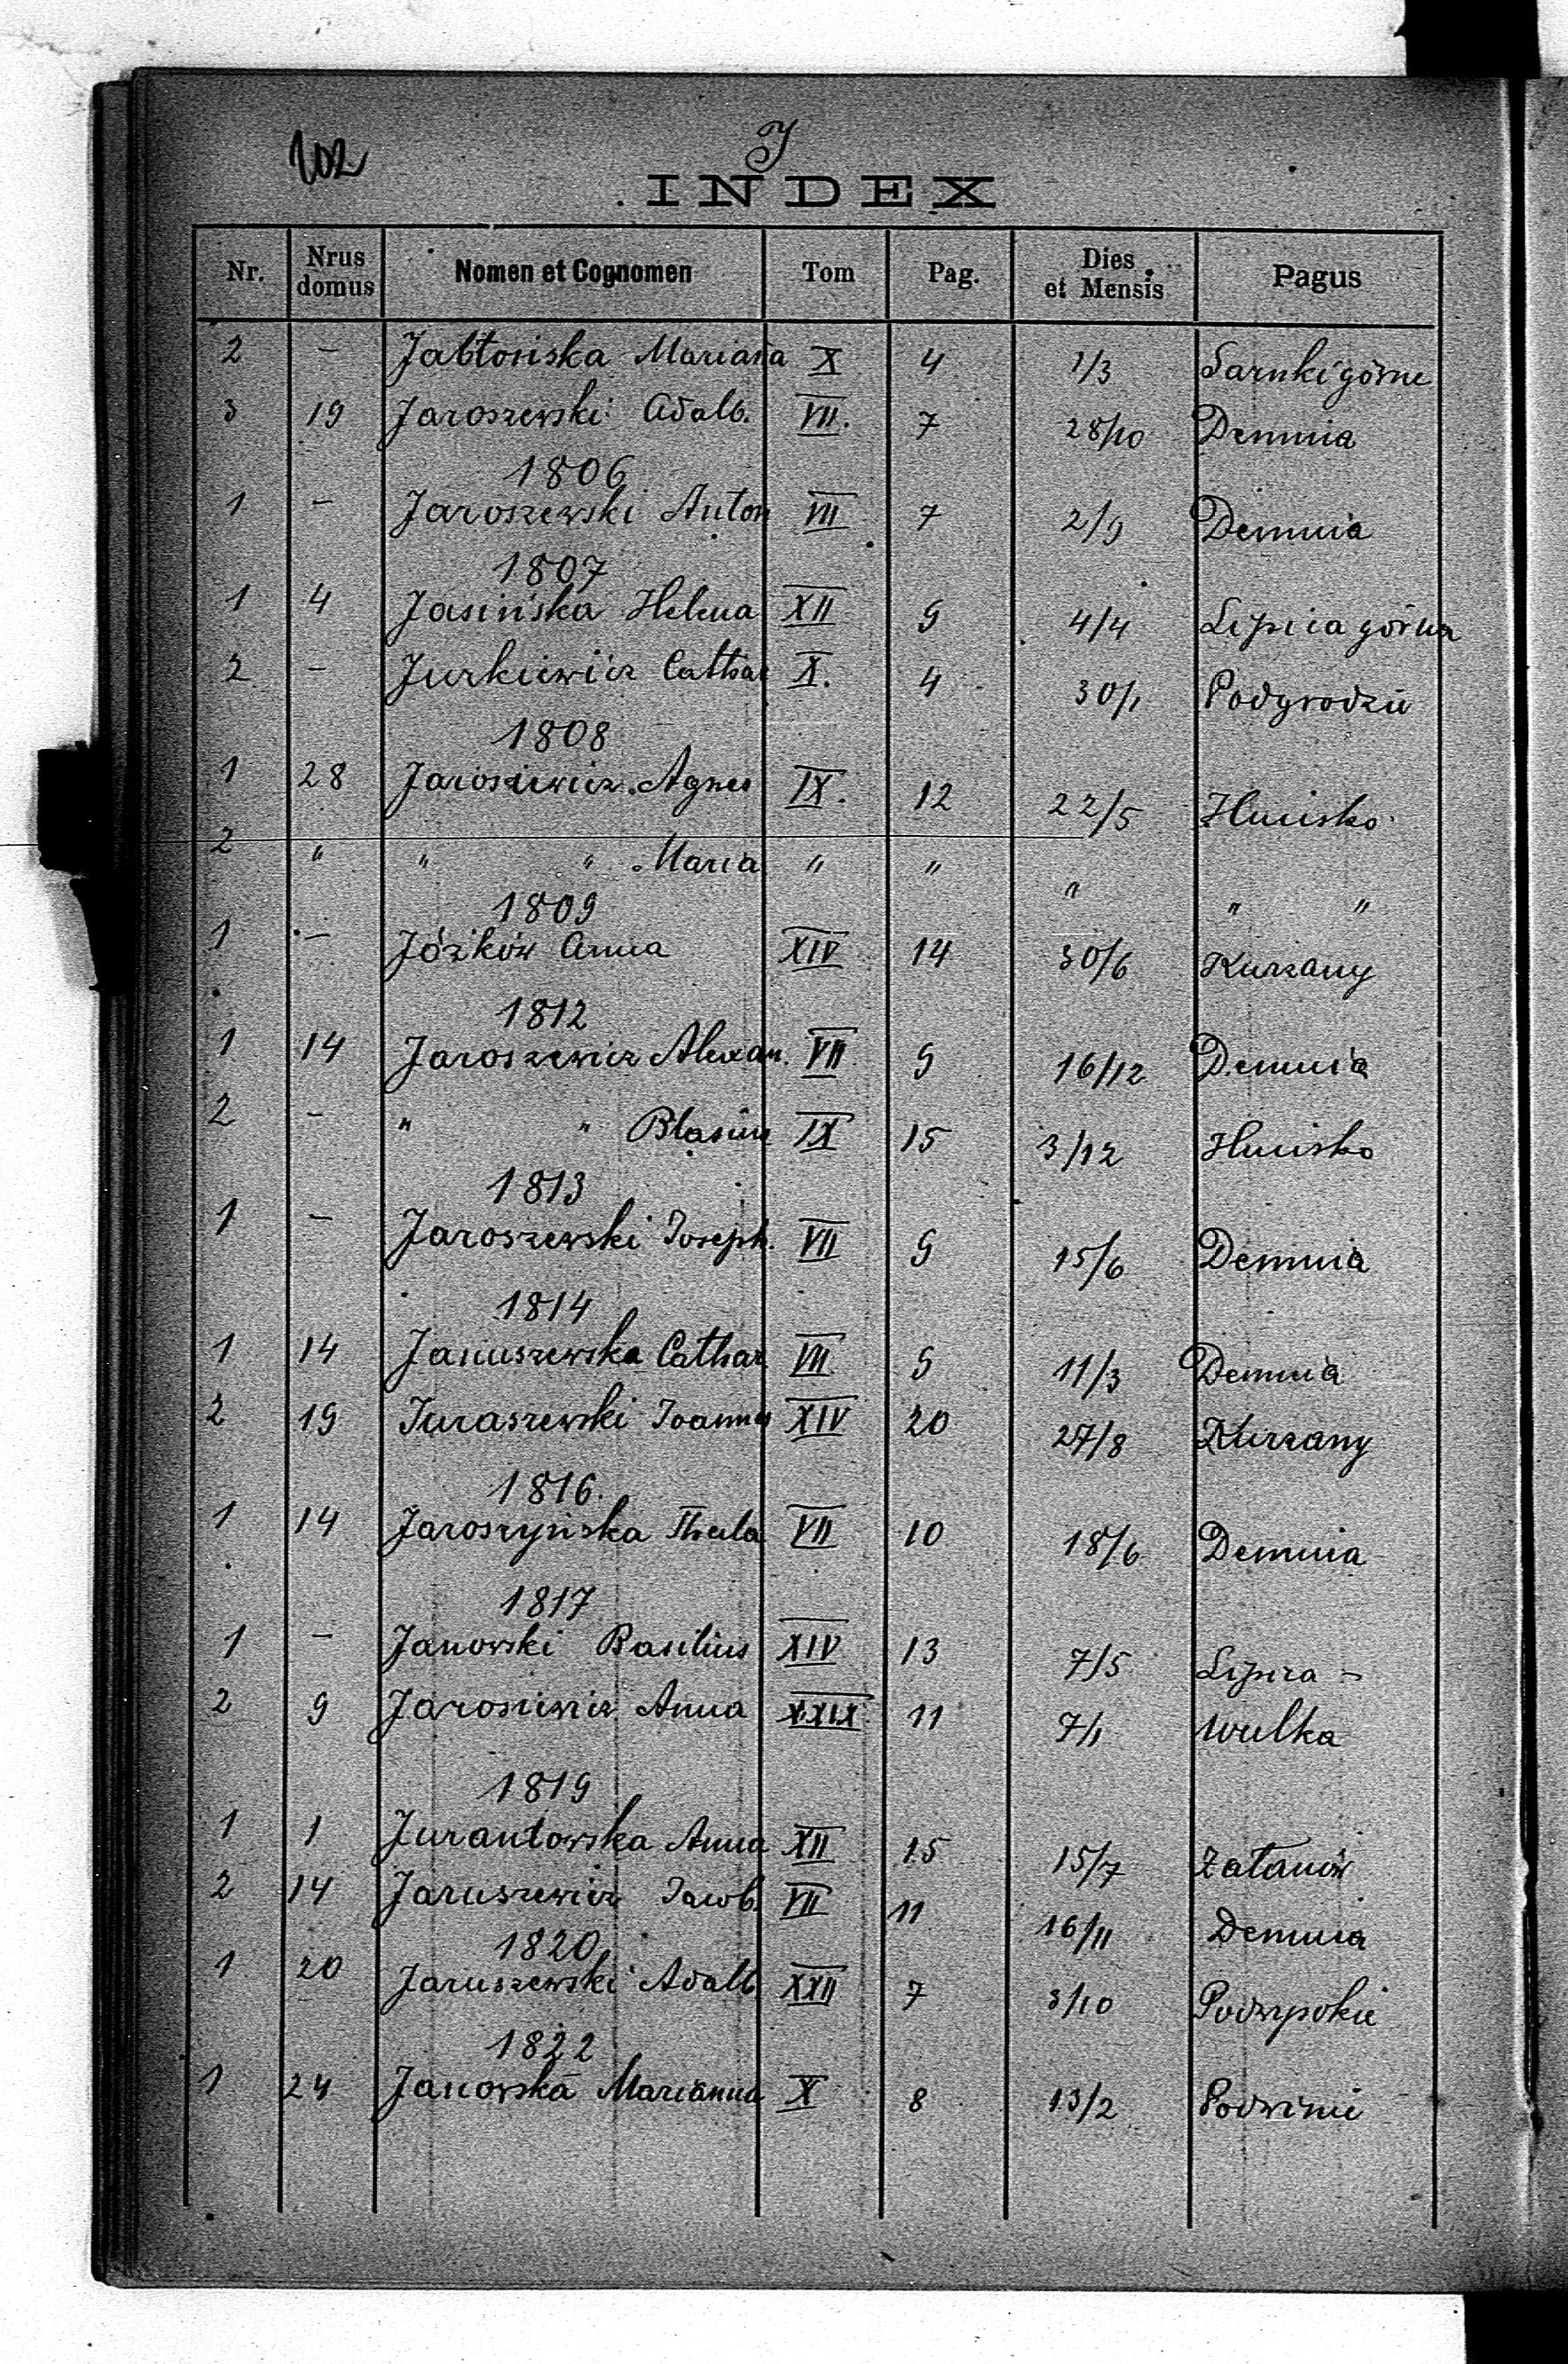 102
J
INDEX
Nr. Nrus domus Nomen et Cognomen Tom Pag. Dies et Mensis Pagus
2 – Jabłońska Mariana X 4 1/3 Sarnki górne
3 19 Jaroszewski Adalb. VII. 7 28/10 Demnia
1806
1 – Jaroszewski Anton VII 7 2/9 Demnia
1807
1 4 Jasińska Helena XII 9 4/4 Lipica górna
2 – Jurkiewicz Cathar X. 4 30/1 Podgrodzie
1808
1 28 Jarosiewicz Agnes IX. 12 22/5 Hucisko
2 " " " Maria " " " " "
1809
1 – Józków Anna XIV 14 30/6 Kurzany
1812
1 14 Jaroszewicz Alexan. VII 9 16/12 Demnia
2 – " " Blasius IX 15 3/12 Hucisko
1813
1 – Jaroszewski Joseph. VII 9 15/6 Demnia
1814
1 14 Januszewska Cathar VII 9 11/3 Demnia
2 19 Juraszewski Joannes XIV 20 27/8 Kurzany
1816.
1 14 Jaroszyńska Thecla VII 10 18/6 Demnia
1817
1 – Janowski Basilius XIV 13 7/5 Lipica –
2 9 Jarosiewicz Anna XXIX 11 7/1 Wulka
1819
1 1 Jurantowska Anna XII 15 15/7 Załanów
2 14 Jaruszewicz Jacob. VII 11 16/11 Demnia
1820
1 20 Jaruszewski Adalb. XXII 7 3/10 Podwysokie
1822
1 24 Janowska Marianna X 8 13/2 Podwinie